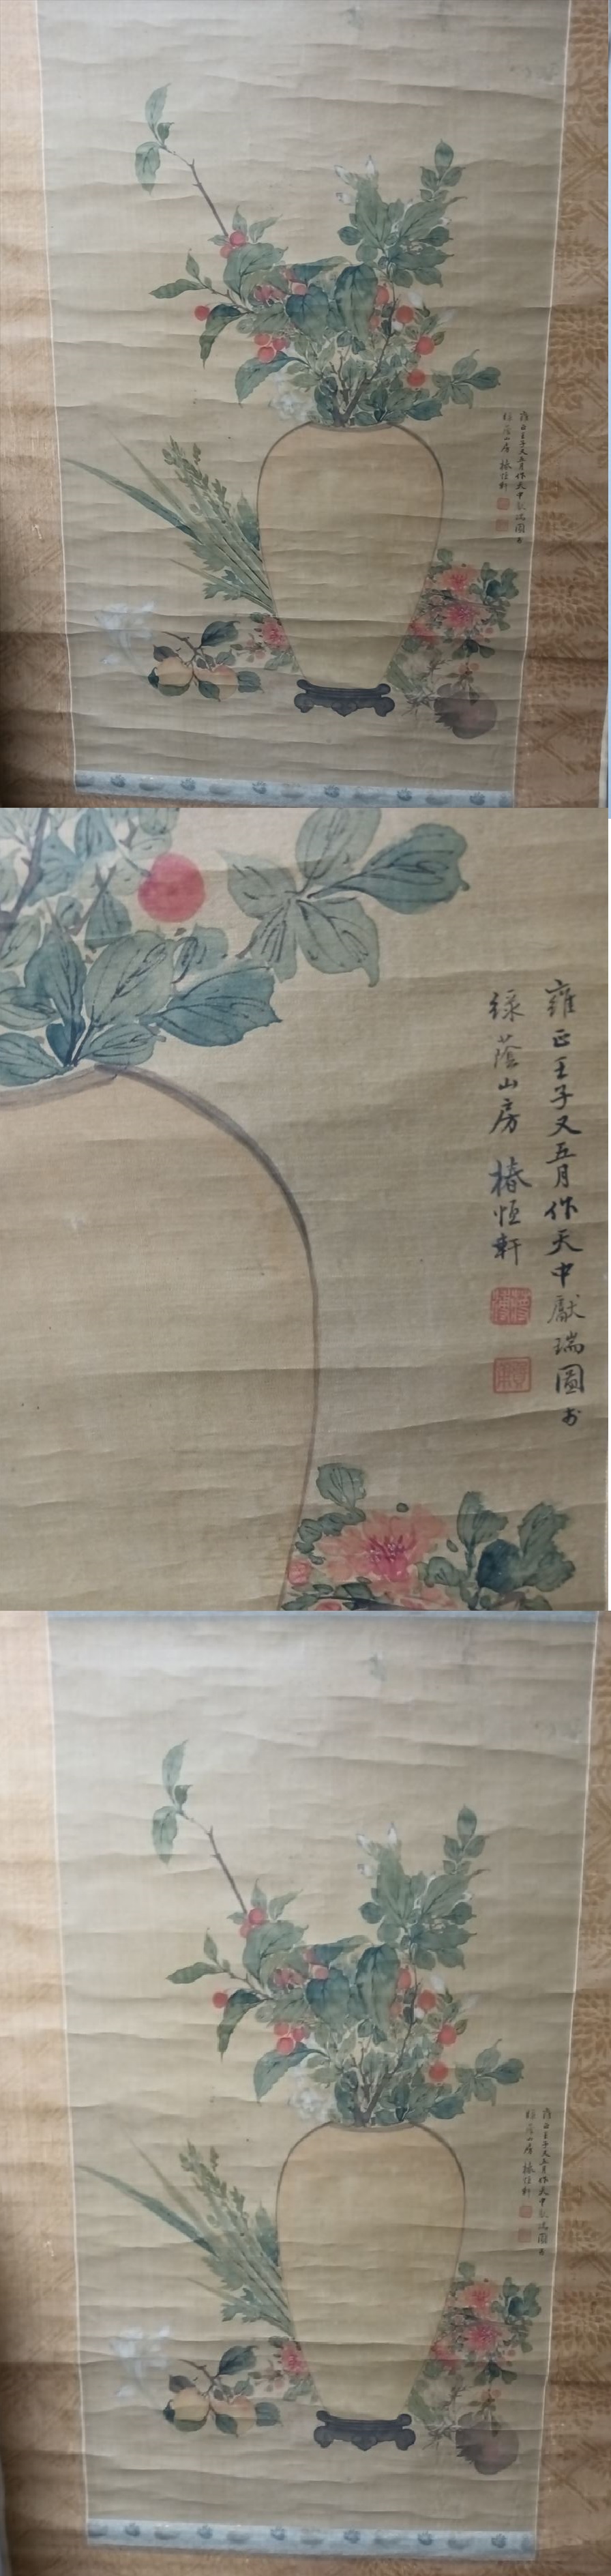 雍正壬子又五月作天中獻瑞圖於
綠蔭山房 椿恒軒